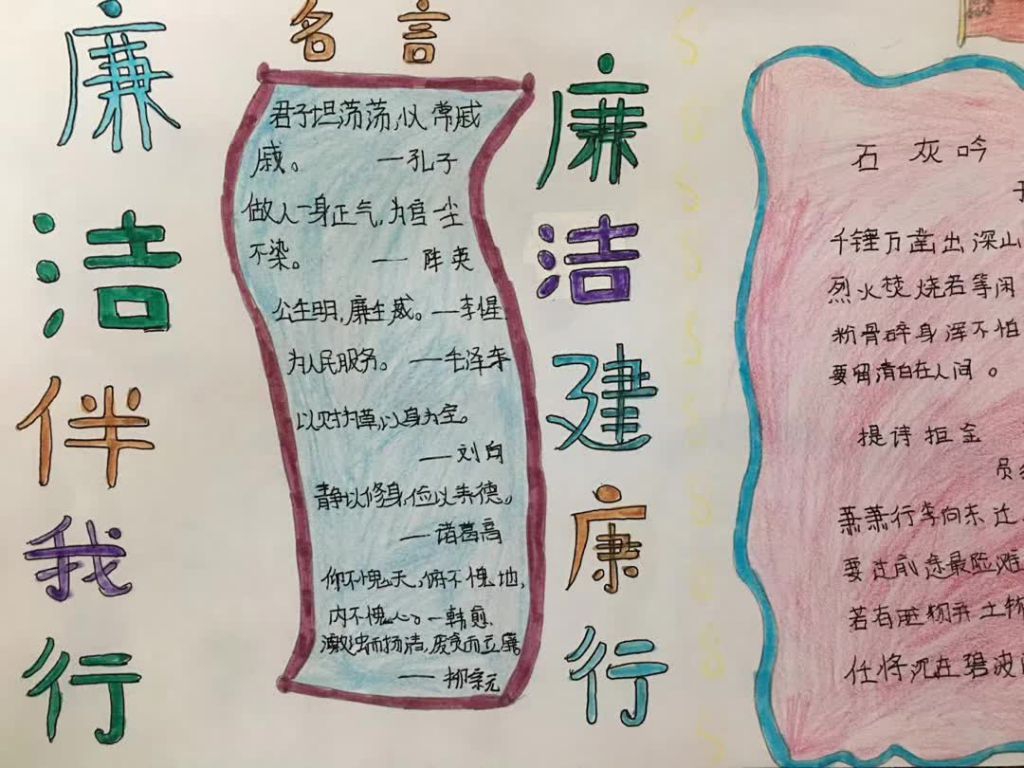 廉洁伴我行
名言
君子坦荡荡,以常戚
戚。 —孔子
做人一身正气,为官一尘
不染。 —阵英
公生明,廉生威。—李惺
为人民服务。—毛泽东
以身为宝。
—刘向
静以修身,俭以养德。
—诸葛亮
仰不愧天,俯不愧地,
内不愧心。—韩愈
激浊而扬清,废贪而立廉
—柳宗元
廉洁建康行
石灰吟
千锤万凿出深山
烈火焚烧若等闲
粉骨碎身浑不怕
要留清白在人间。
提诗拒金
萧萧行李向东还
要过前途最险滩
若有赃物并土物
任将沉在碧波